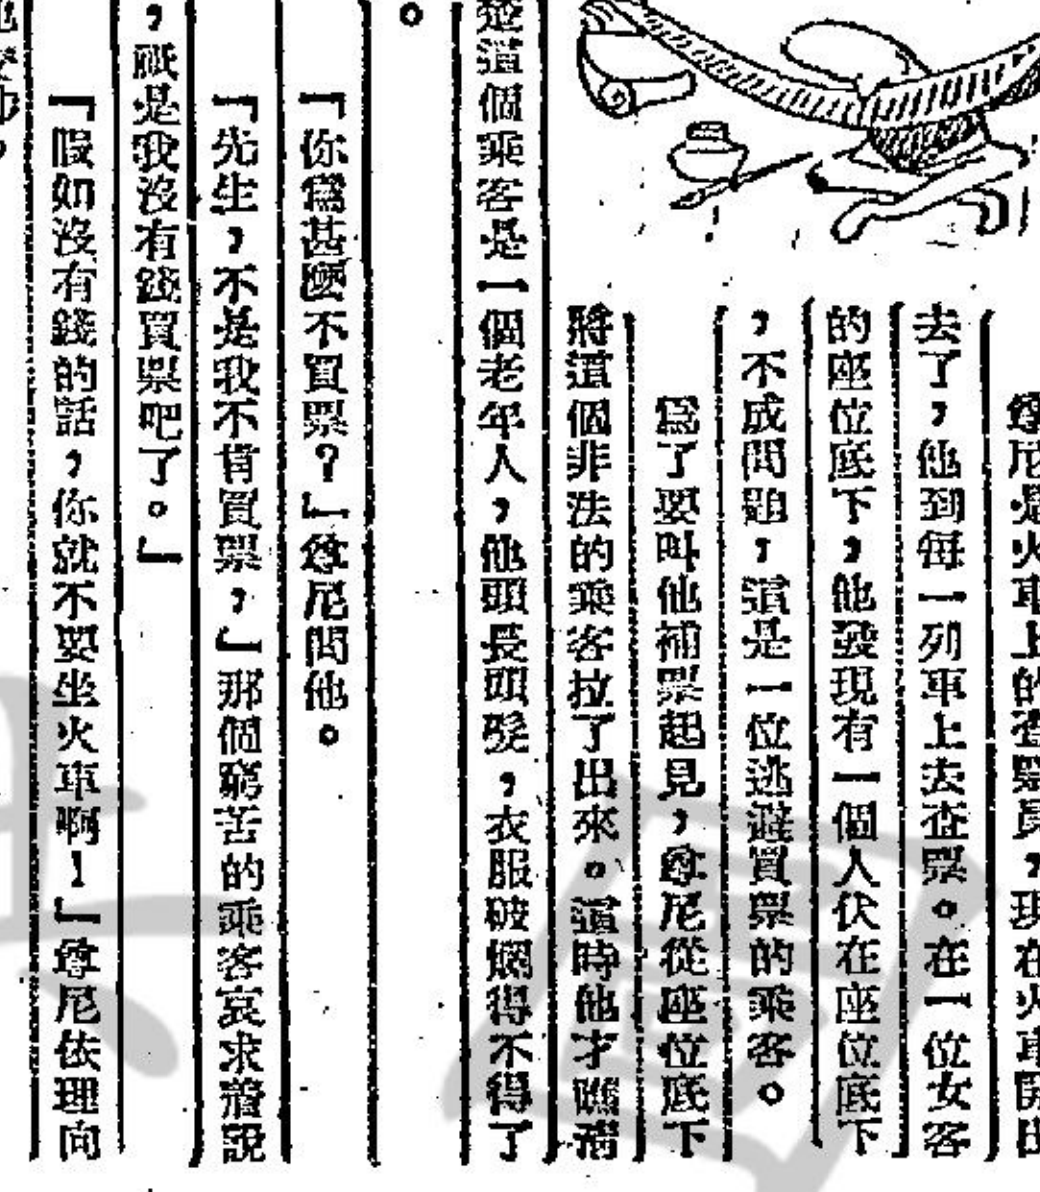 尊尼是火車上的查票員，現在火車開出
去了，他到每一列車上去查票。在一位女客
的座位底下，他發現有一個人伏在座位底下
，不成問題，這是一位逃避買票的乘客。
爲了要叫他補票起見，尊尼從座位底下
將這個非法的乘客拉了出來。這時他才瞧清
楚這個乘客是一個老年人，他頭長頭髮，衣服破爛得不得了
。
「你爲甚麽不買票？」尊尼問他。
「先生，不是我不肯買票，」那個窮苦的乘客哀求着說
，祇是我沒有錢買票吧了。」
「假如沒有錢的話，你就不要坐火車啊！」尊尼依理向